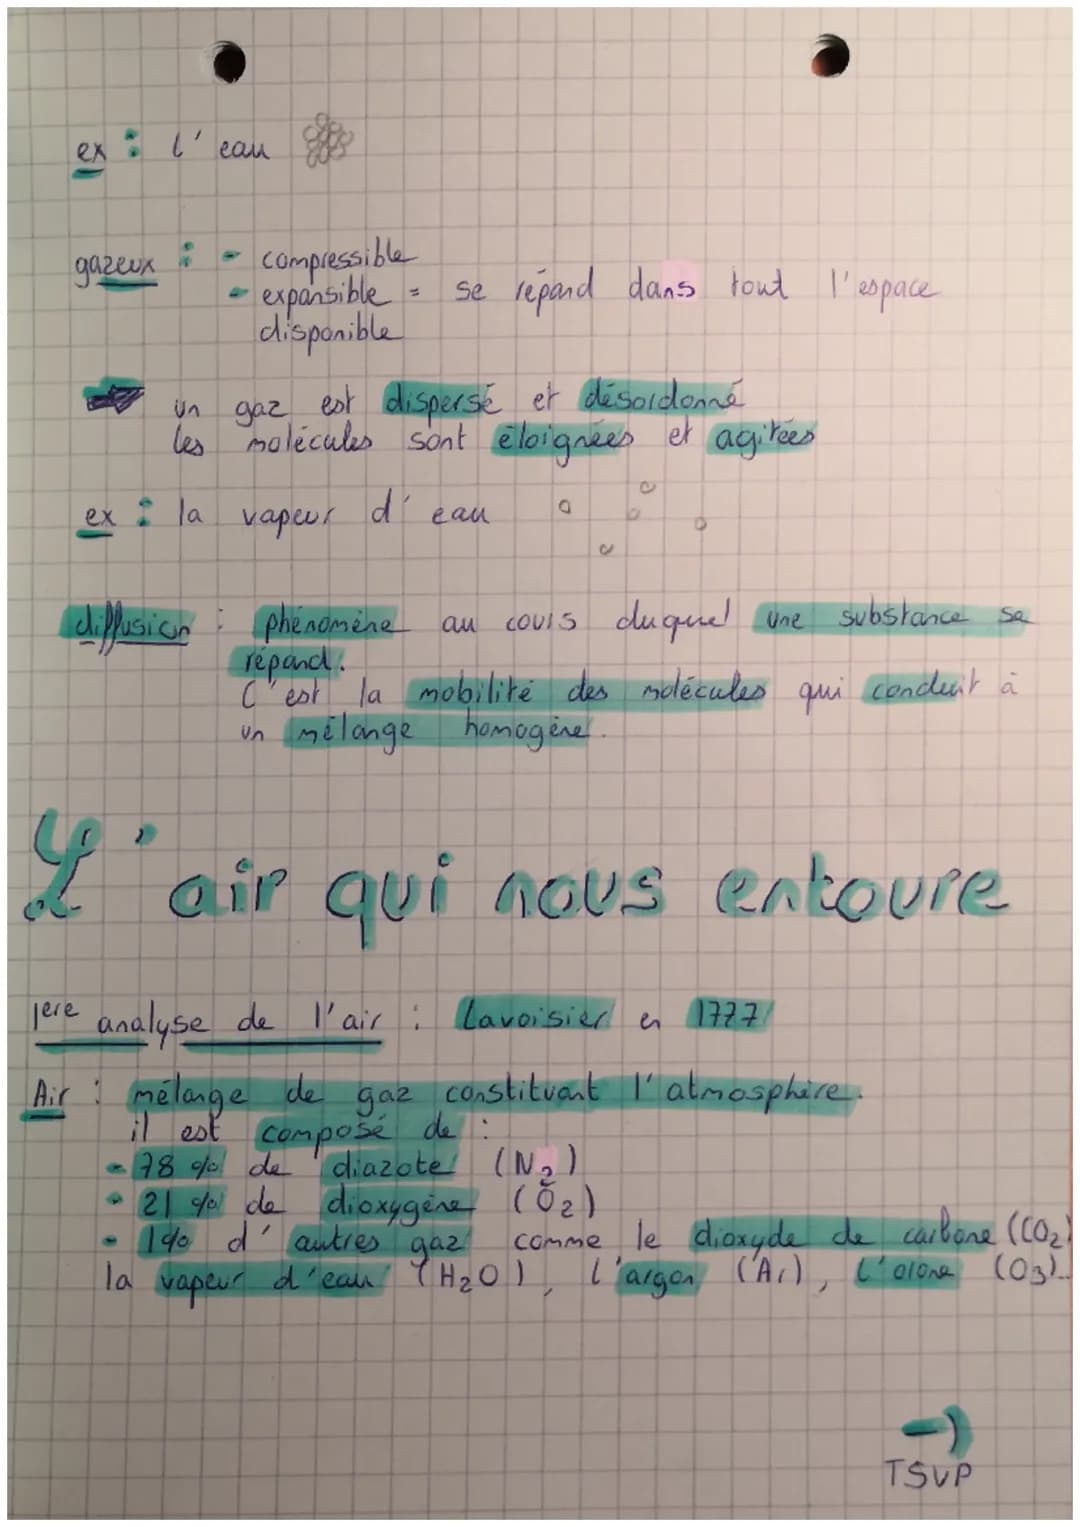 ex : l'eau
gazeux : - compressible
- expansible = se répand dans tout l'espace
disponible
un gaz est dispersé et désordonné
les molécules sont éloignées et agitées
ex : la vapeur d'eau
diffusion : phénomène au cours duquel une substance se
répand.
C'est la mobilité des molécules qui conduit à
un mélange homogène.
L'air qui nous entoure
1ere analyse de l'air : Lavoisier en 1777
Air : mélange de gaz constituant l'atmosphère.
il est composé de :
- 78 % de diazote (N2)
- 21 % de dioxygène (O2)
- 1% d'autres gaz comme le dioxyde de carbone (CO2)
la vapeur d'eau (H2O), l'argon (Ar), l'ozone (O3)...
→
TSVP